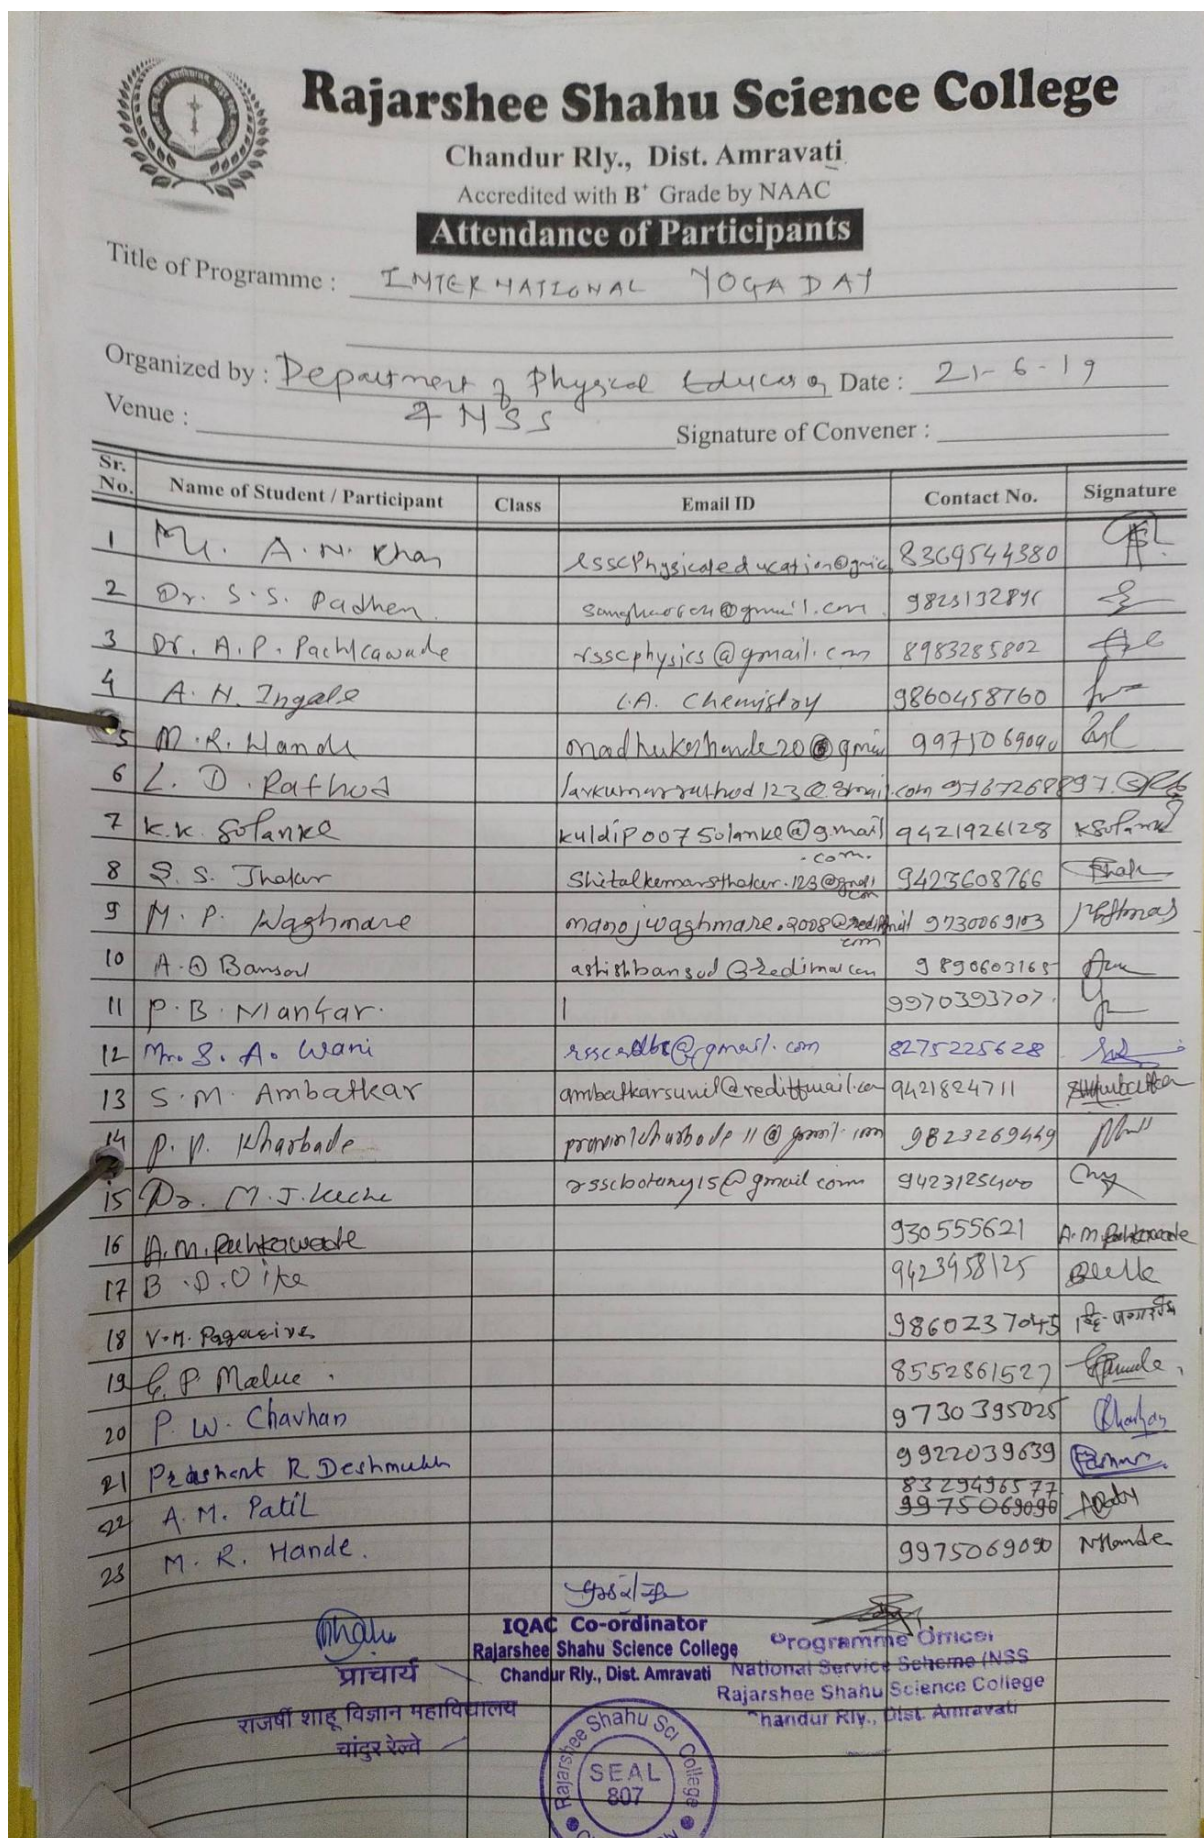 Rajarshee Shahu Science College
Chandur Rly., Dist. Amravati
Accredited with B+ Grade by NAAC
Attendance of Participants
Title of Programme : INTERNATIONAL YOGA DAY
Organized by : Department of Physical Education Date : 21-6-19
& NSS
Venue : Signature of Convener :
Sr. No. Name of Student / Participant Class Email ID Contact No. Signature
1 Mr. A. N. Khan 8369544380
2 Dr. S. S. Padhen
3 Dr. A. P. Pachkawade rsscphysics@gmail.com 8983285802
4 A. N. Ingale C.A. Chemistry 9860458760
5 M. R. Hande 9975069090
6 L. D. Rathod 9767268897
7 K. K. Solanke kuldip007solanke@gmail.com 9421926128 KSolanke
8 S. S. Thakar 9423608766
9 M. P. Waghmare manojwaghmare.2008@rediffmail.com 9730069103
10 A. D. Bansod 9890603165
11 P. B. Mankar. 9970393707.
12 Mr. S. A. Wani 8275225628
13 S. M. Ambatkar ambatkarsunil@rediffmail.com 9421824711
14 P. P. Kharbade 9823269449
15 Dr. M. J. Keche rsscbotany15@gmail.com 9423125400
16 A. M. Pachkawade 930555621 A. M. Pachkawade
17 B. D. Uike 9423958125
18 V. M. 9860237045
19 G. P. Malve. 8552861527
20 P. W. Chavhan 9730395025
21 Prashant R Deshmukh 9922039639
22 A. M. Patil 8329496577
9975069090
23 M. R. Hande. 9975069090
प्राचार्य
राजर्षी शाहू विज्ञान महाविद्यालय
चांदुर रेल्वे
IQAC Co-ordinator
Rajarshee Shahu Science College
Chandur Rly., Dist. Amravati
Programme Officer
National Service Scheme (NSS
Rajarshee Shahu Science College
Chandur Rly., Dist. Amravati
Rajarshee Shahu Sci College
SEAL
807